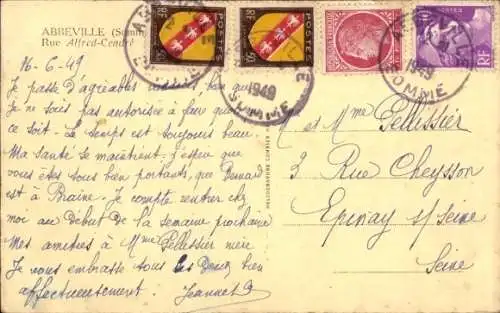 ABBEVILLE (Somme)
Rue Alfred-Cendré
16-6-49
Je passe d'agréables
Je ne sais pas autorisée à faire quoi
ce soit. Le temps est toujours beau
Ma santé se maintient. J'espère que
vous êtes tous bien portants, que Bernard
est à Braine. Je compte rentrer chez
moi au début de la semaine prochaine
Mes amitiés à Mme Pellessier mère
Je vous embrasse tous les Deux bien
affectueusement. Jeannette
POSTES
POSTES
ABBEVILLE
1949
SOMME
ABBEVILLE
1949
SOMME
M et Mme Pellessier
3 Rue Cheysson
Epinay s/ Seine
Seine